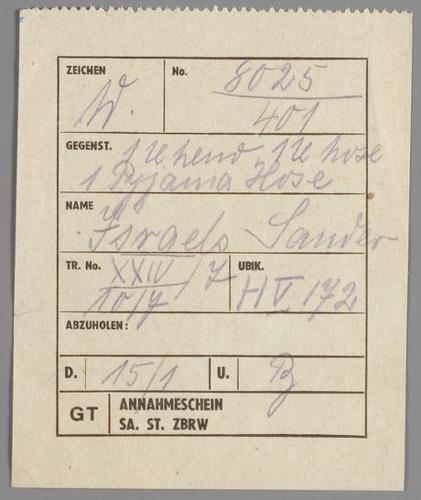 ZEICHEN W. No. 8025
401
GEGENST. 1 Uhemd, 1 Uhose
1 Pyjama Hose
NAME
Israels Sander
TR. No. XXIV/7 UBIK. HV 172
10/7
ABZUHOLEN:
D. 15/1 U.
GT ANNAHMESCHEIN
SA. ST. ZBRW